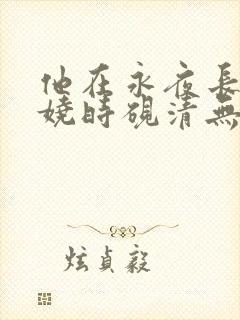 他在永夜長
嬈時硯清無
炫貞毅